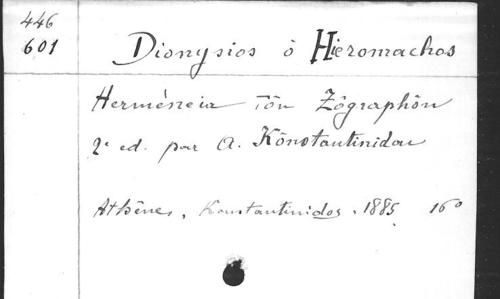 446
601
Dionysios ò Hieromachos
Herméneia Tôn Zôgraphôn
2e ed. par A. Kônstantinidou
Athênes, Konstantinidos, 1885 16°